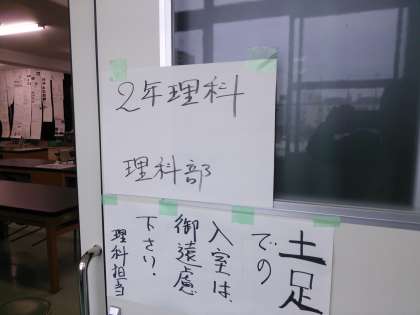 2年理科
理科部
土足
での
入室は、
御遠慮
下さい!
理科担当